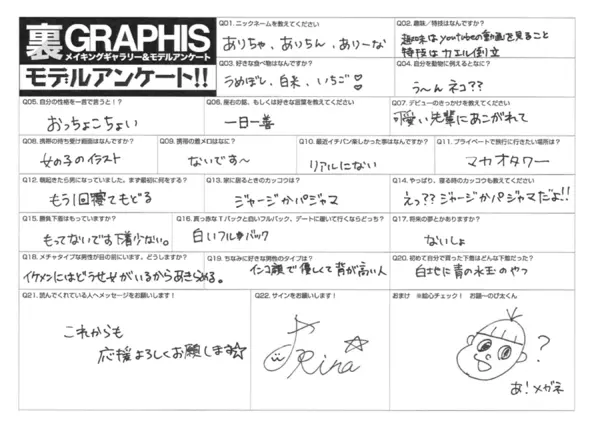 裏GRAPHIS
メイキングギャラリー&モデルアンケート
モデルアンケート!!
Q01. ニックネームを教えてください
ありちゃ、ありちん、ありーな
Q02. 趣味/特技はなんですか?
趣味はyoutubeの動画を見ること
特技はカエル倒立
Q03. 好きな食べ物はなんですか?
うめぼし、白米、いちご♡
Q04. 自分を動物に例えるとなに?
う〜んネコ??
Q05. 自分の性格を一言で言うと!?
おっちょこちょい
Q06. 座右の銘、もしくは好きな言葉を教えてください
一日一善
Q07. デビューのきっかけを教えてください
可愛い先輩にあこがれて
Q08. 携帯の待ち受け画面はなんですか?
女の子のイラスト
Q09. 携帯の着メロはなに?
ないです〜
Q10. 最近イチバン楽しかった事はなんですか?
リアルにない
Q11. プライベートで旅行に行きたい場所は?
マカオタワー
Q12. 朝起きたら男になっていました。まず最初に何をする?
もう1回寝てもどる
Q13. 家に居るときのカッコウは?
ジャージかパジャマ
Q14. やっぱり、寝る時のカッコウも教えてください
えっ??ジャージかパジャマだよ!!
Q15. 勝負下着はもっていますか?
もってないです下着少ない。
Q16. 真っ赤なTバックと白いフルバック、デートに履いて行くならどっち?
白いフルバック
Q17. 将来の夢とかありますか?
ないしょ
Q18. メチャタイプな男性が目の前にいます。どうしますか?
イケメンにはどうせ女がいるからあきらめる。
Q19. ちなみに好きな男性のタイプは?
インコ顔で優しくて背が高い人
Q20. 初めて自分で買った下着はどんな下着だった?
白地に青の水玉のやつ
Q21. 読んでくれている人へメッセージをお願いします!
これからも
応援よろしくお願します☆
Q22. サインをお願いします!
Rina
おまけ ※絵心チェック! お題→のび太くん
?
あ!メガネ